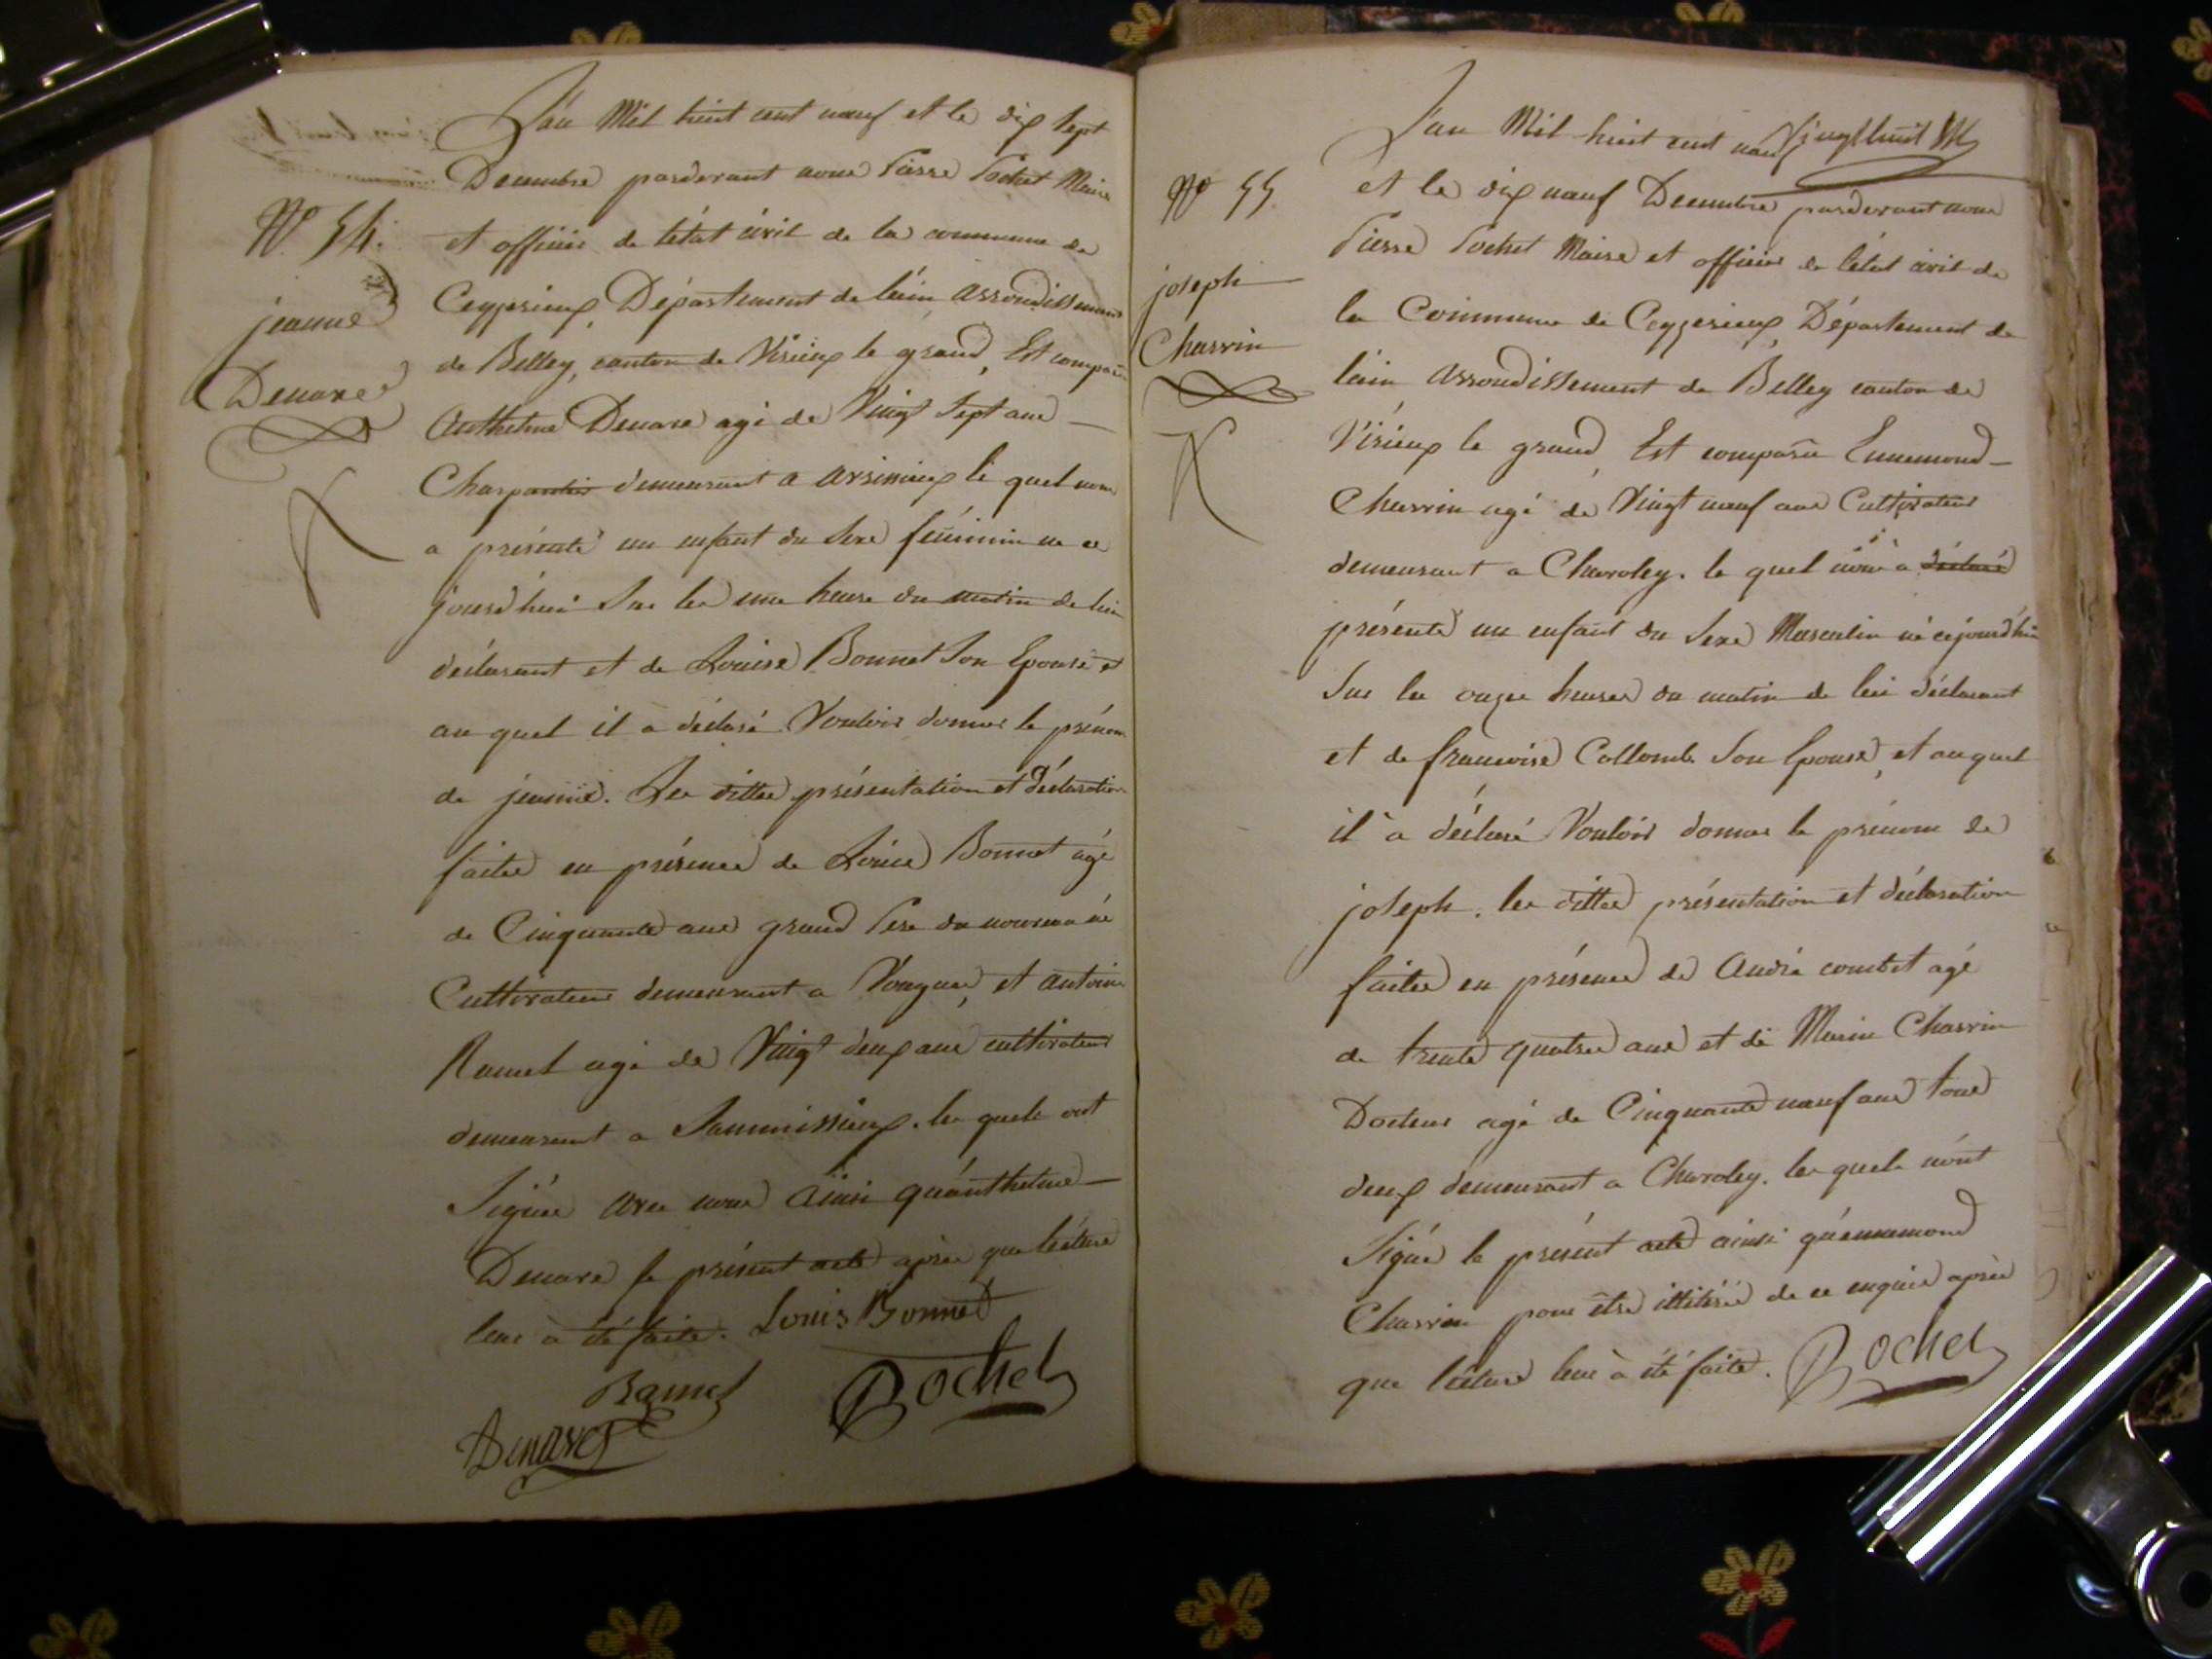 N.º 54.
jeanne
Denare
L'an Mil huit cent neuf et le dix sept
Decembre pardevant nous Pierre Pochet Maire
et officier de l'état civil de la commune de
Ceyzerieux, Département de l'ain arrondissement
de Belley, canton de Virieux le grand, Est comparu
Anthelme Denare agé de Vingt sept ans
Charpentier demeurant a arsimieux le quel nous
a présenté un enfant du sexe féminin né ce
jourd'hui sur les une heure du matin de lui
déclarant et de Louise Bonnet son Epouse et
au quel il à déclaré Vouloir donner le prénom
de jeanne. Les dittes présentation et Déclaration
faites en présence de Louis Bonnet agé
de Cinquante ans grand Pere du nouveau né
Cultivateur demeurant a Vongnes, et antoine
Ramel agé de Vingt deux ans cultivateur
demeurant a Sammissieux. les quels ont
Signés avec nous Ainsi qu'anthelme
Denare le présent acte après que lécture
leur à été faite. Louis Bonnet
Ramel
Pochet
Denare
Vingt huit
N.º 55.
joseph
Charvin
L'an Mil huit cent neuf
et le dix neuf Decembre pardevant nous
Pierre Pochet Maire et officier de l'état civil de
la Commune de Ceyzerieux, Département de
l'ain arrondissement de Belley canton de
Virieux le grand, Est comparu Ennemond
Charvin agé de Vingt neuf ans Cultivateur
demeurant a Chavoley. le quel nous à déclaré
présenté un enfant du sexe Masculin né cejourd'hui
sur les onze heures du matin de lui déclarant
et de francoise Collomb son Epouse, et auquel
il à déclaré Vouloir donner le prénom de
joseph. les dittes présentation et déclaration
faites en présence de André combet agé
de trente quatre ans et de Marin Charvin
Docteur agé de Cinquante neuf ans tous
deux demeurant a Chavoley. les quels n'ont
Signé le présent acte ainsi qu'ennemond
Charvin pour être illitérés de ce enquis après
que lécture leur à été faite. Pochet